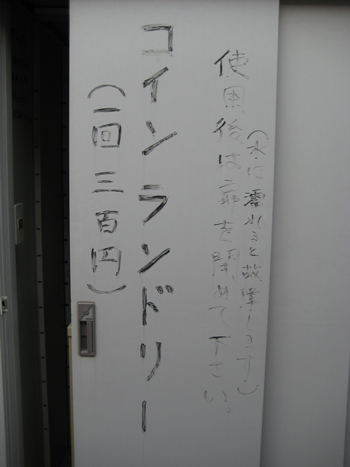 (水に濡れると故障します)
使用後は扉を閉めて下さい。
コインランドリー
(一回三百円)